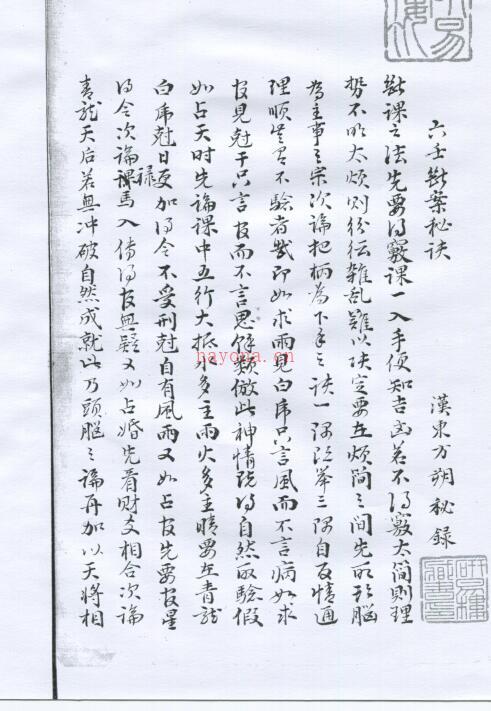 六壬斷案秘訣
漢東方朔秘錄
斷課之法先要得竅課一入手便知吉凶若不得竅太簡則理
勢不明太煩則紛紜雜亂難以決定要在煩簡之間先取頭腦
為主事之宗次論把柄為下手之訣一隅既舉三隅自反情通
理順豈有不驗者哉即如求雨見白虎只言風而不言病如求
官見尅干只言官而不言鬼餘類倣此神情說得自然取驗假
如占天時先論課中五行大抵水多主雨火多主晴要在青龍
白虎尅日更加得令不受刑尅自有風雨又如占官先要官星
得令次論祿馬入傳得官無疑又如占婚先看財爻相合次論
青龍天后若無冲破自然成就此乃頭腦之論再加以天將相
nayona.cn